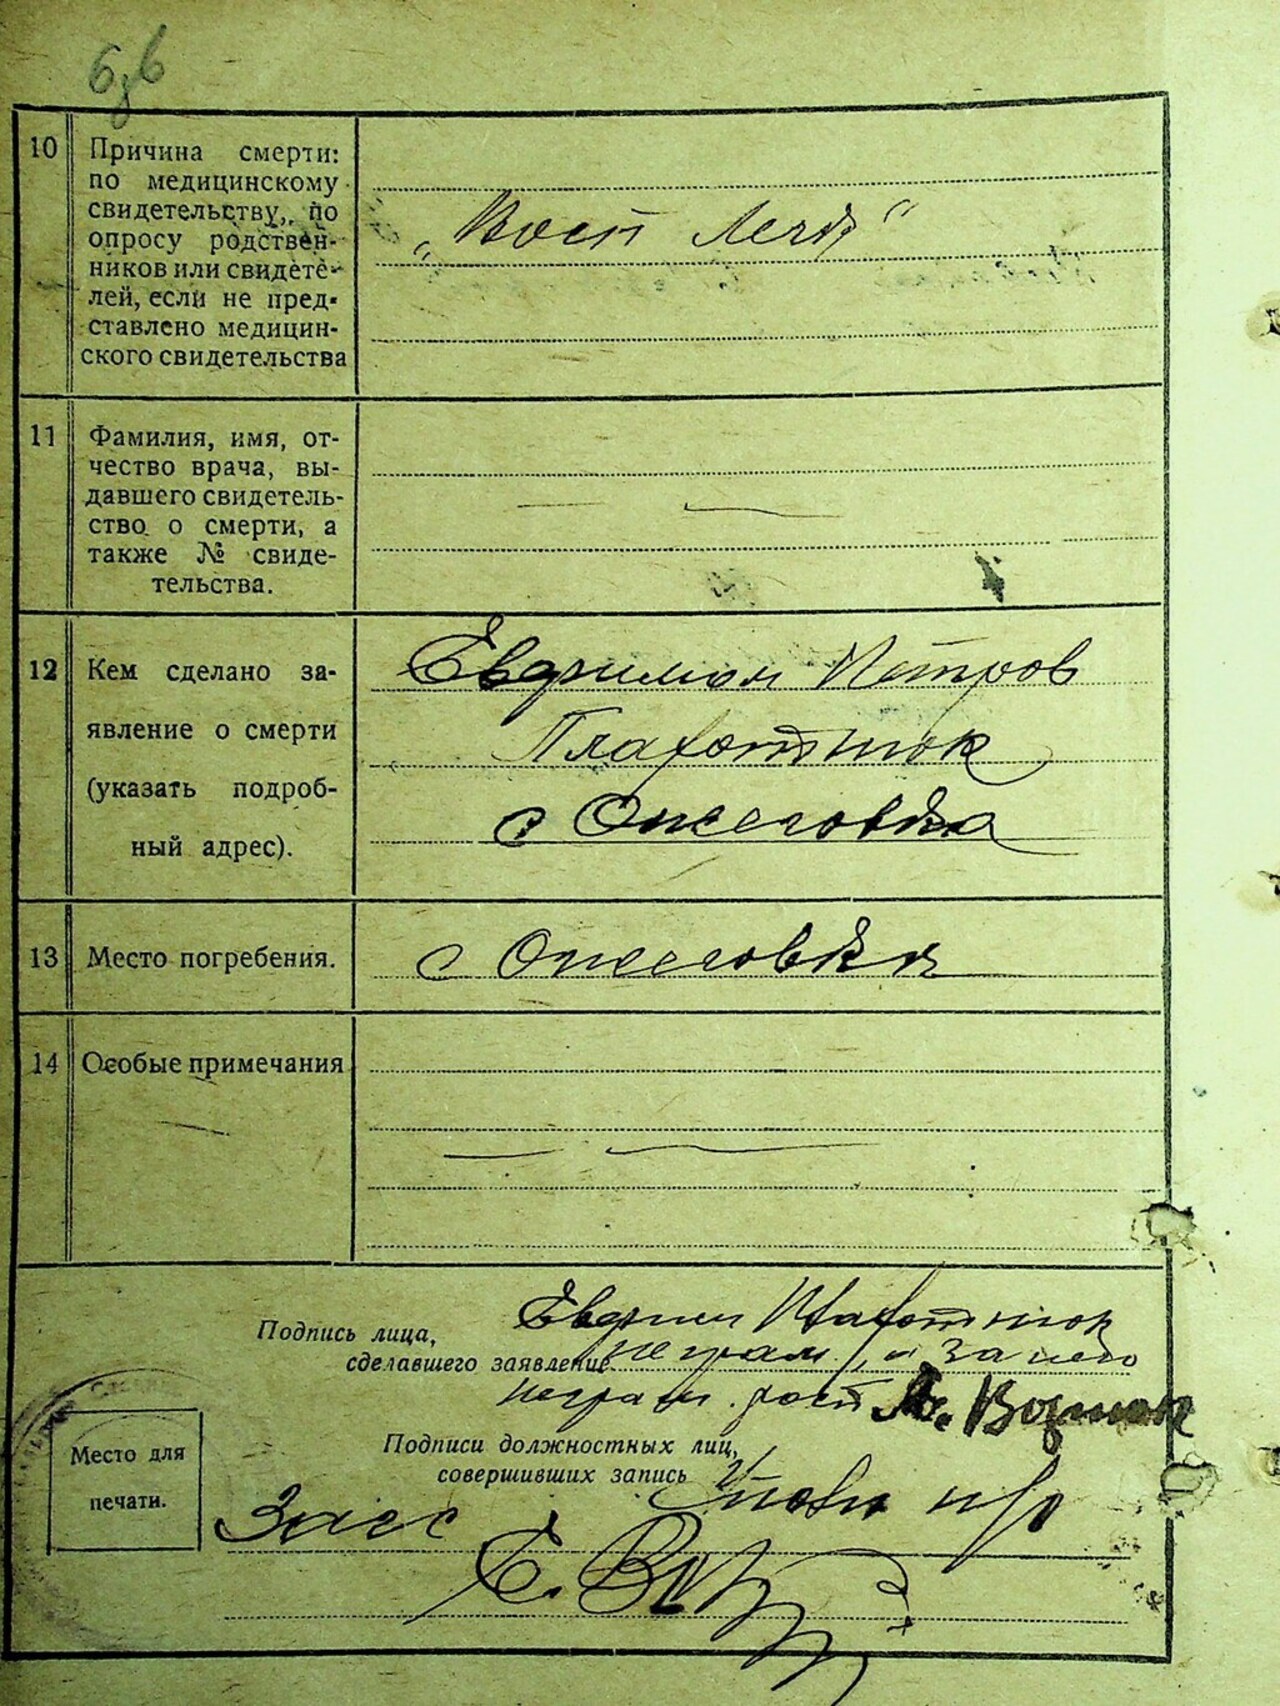 10 Причина смерти:
по медицинскому
свидетельству, по
опросу родствен-
ников или свидете-
лей, если не пред-
ставлено медицин-
ского свидетельства
„Восп Легк“
11 Фамилия, имя, от-
чество врача, вы-
давшего свидетель-
ство о смерти, а
также № свиде-
тельства.
12 Кем сделано за-
явление о смерти
(указать подроб-
ный адрес).
Петров
Плахотнюк
с Ожеговка
13 Место погребения.
с Ожеговка
14 Особые примечания
Плахотнюк
Подпись лица,
сделавшего заявление
неграм, а за него
неграм. рост
Подписи должностных лиц,
совершивших запись
Место для
печати.
Загс